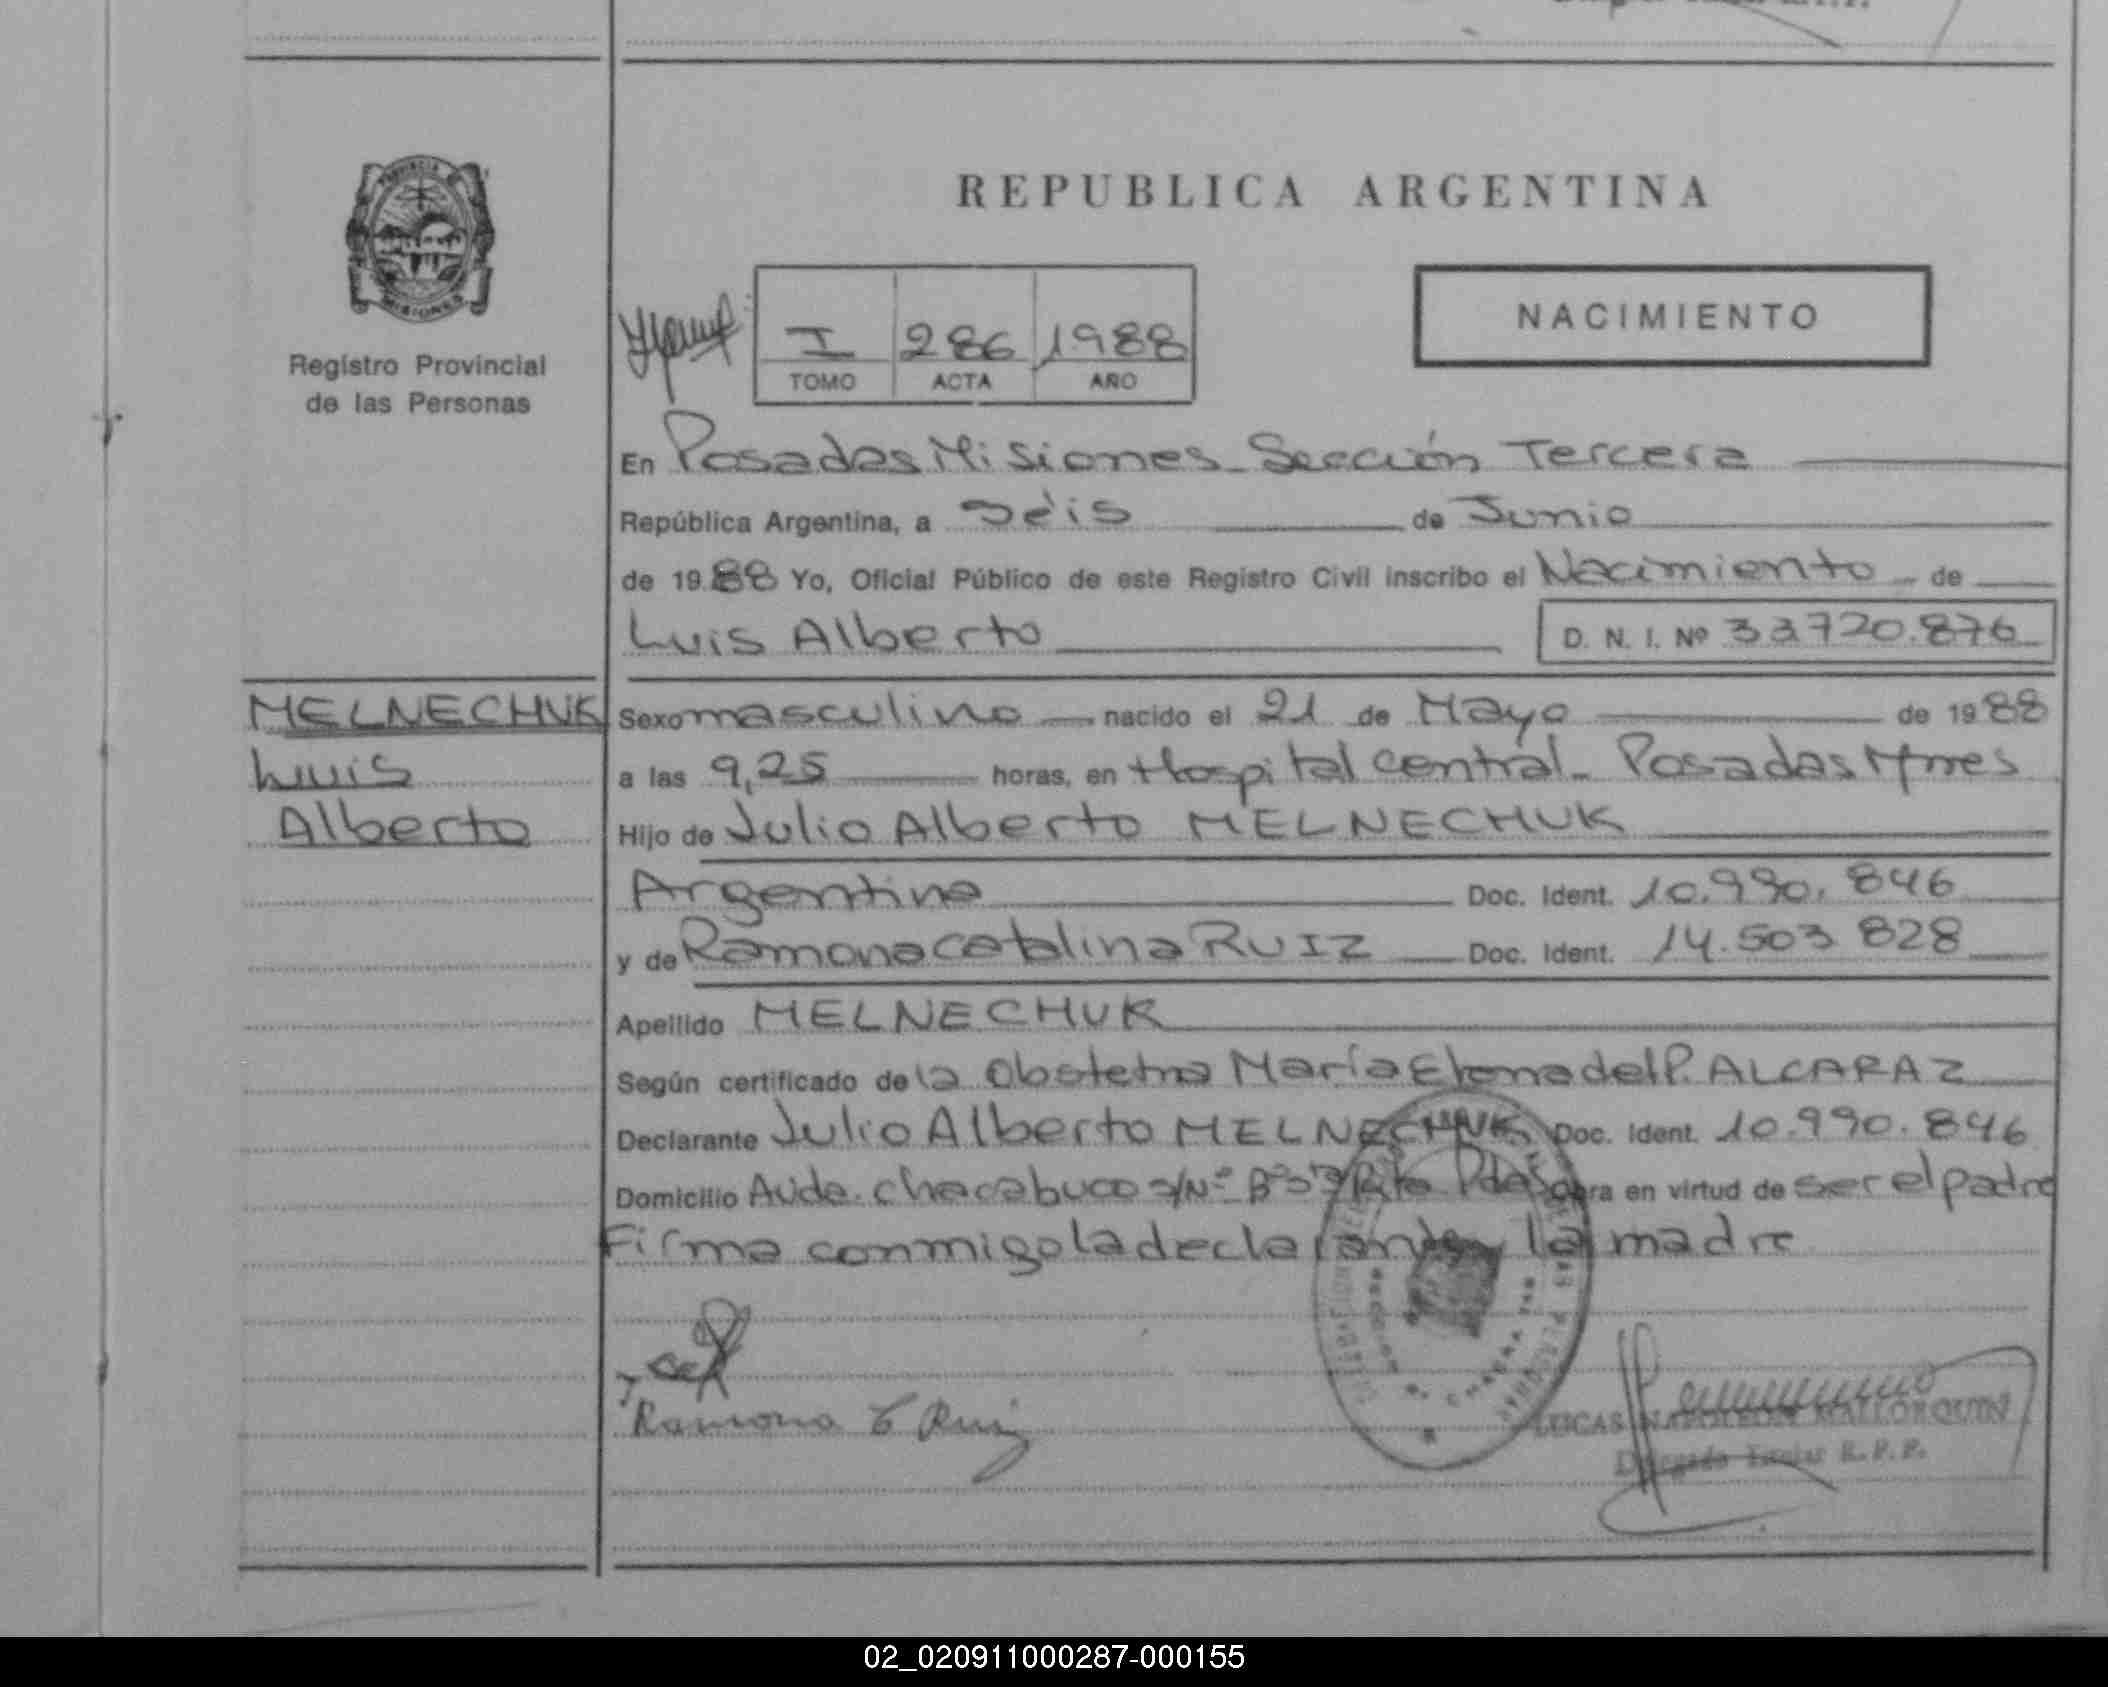 REPUBLICA ARGENTINA
PROVINCIA DE
MISIONES
Registro Provincial
de las Personas
I 286 1988
TOMO ACTA AÑO
NACIMIENTO
En Posadas Misiones - Sección Tercera
República Argentina, a Seis de Junio
de 19.88 Yo, Oficial Público de este Registro Civil inscribo el Nacimiento de
Luis Alberto
D. N. I. Nº 33.720.876
MELNECHUK
Luis
Alberto
Sexo masculino nacido el 21 de Mayo de 1988
a las 9,25 horas, en Hospital Central - Posadas Mnes
Hijo de Julio Alberto MELNECHUK
Argentino Doc. Ident. 10.990.846
y de Ramona Catalina RUIZ Doc. Ident. 14.503 828
Apellido MELNECHUK
Según certificado de la Obstetra María Elena del P. ALCARAZ
Declarante Julio Alberto MELNECHUK Doc. Ident. 10.990.846
Domicilio Avda. Chacabuco s/Nº Bº Pdas obra en virtud de ser el padre
Firma conmigo la declarante la madre
Ramona C Ruiz
LUCAS NAPOLEON MALLORQUIN
Delegado Titular R.P.P.
02_020911000287-000155